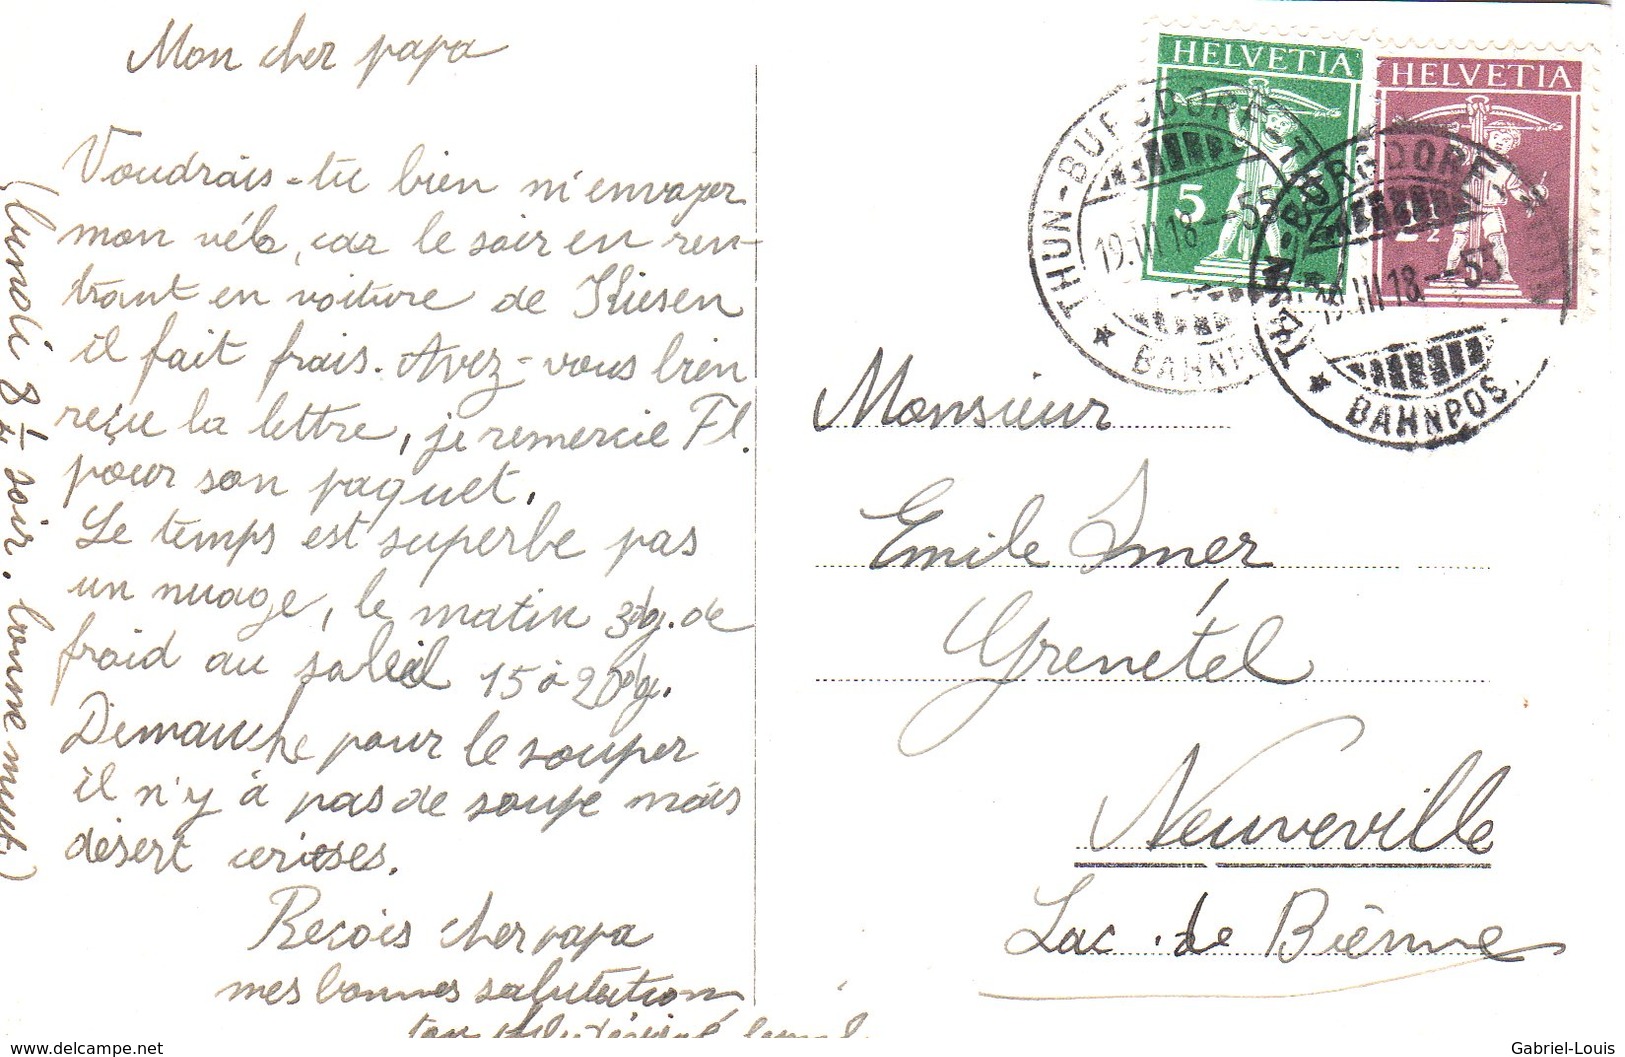 Mon cher papa
Voudrais-tu bien m'envoyer
mon vélo, car le soir en ren-
trant en voiture de Kiesen
il fait frais. Avez-vous bien
reçue la lettre, je remercie Fl.
pour son paquet.
Le temps est superbe pas
un nuage, le matin 3dg. de
froid au soleil 15 à 20dg.
Dimanche pour le souper
il n'y à pas de soupe mais
désert cerises.
Recois cher papa
mes bonnes salutation
ton
(lundi 8 1/4 soir. bonne nuit.)
HELVETIA
5
HELVETIA
2 1/2
THUN-BURGDORF
19.III 18 - 55
BAHNPOST
THUN-BURGDORF-THUN
19.III 18 - 55
BAHNPOS
Monsieur
Emile Imer
Grenétel
Neuveville
Lac de Bienne
delcampe.net
Gabriel-Louis